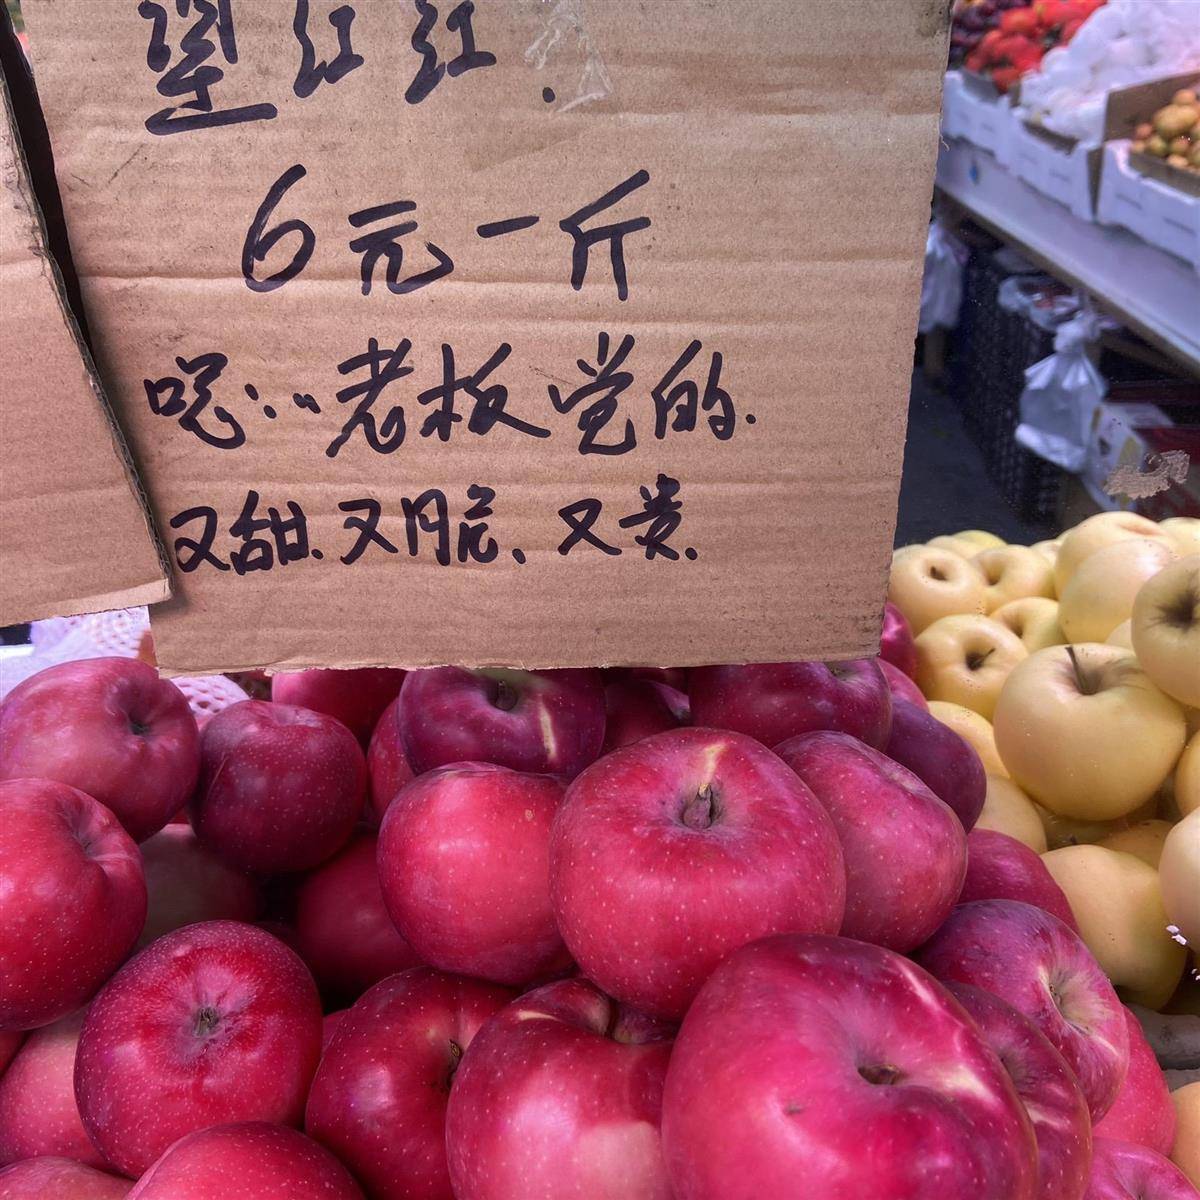 望红红.
6元一斤
嗯:··老板觉的.
又甜.又脆、又贵.